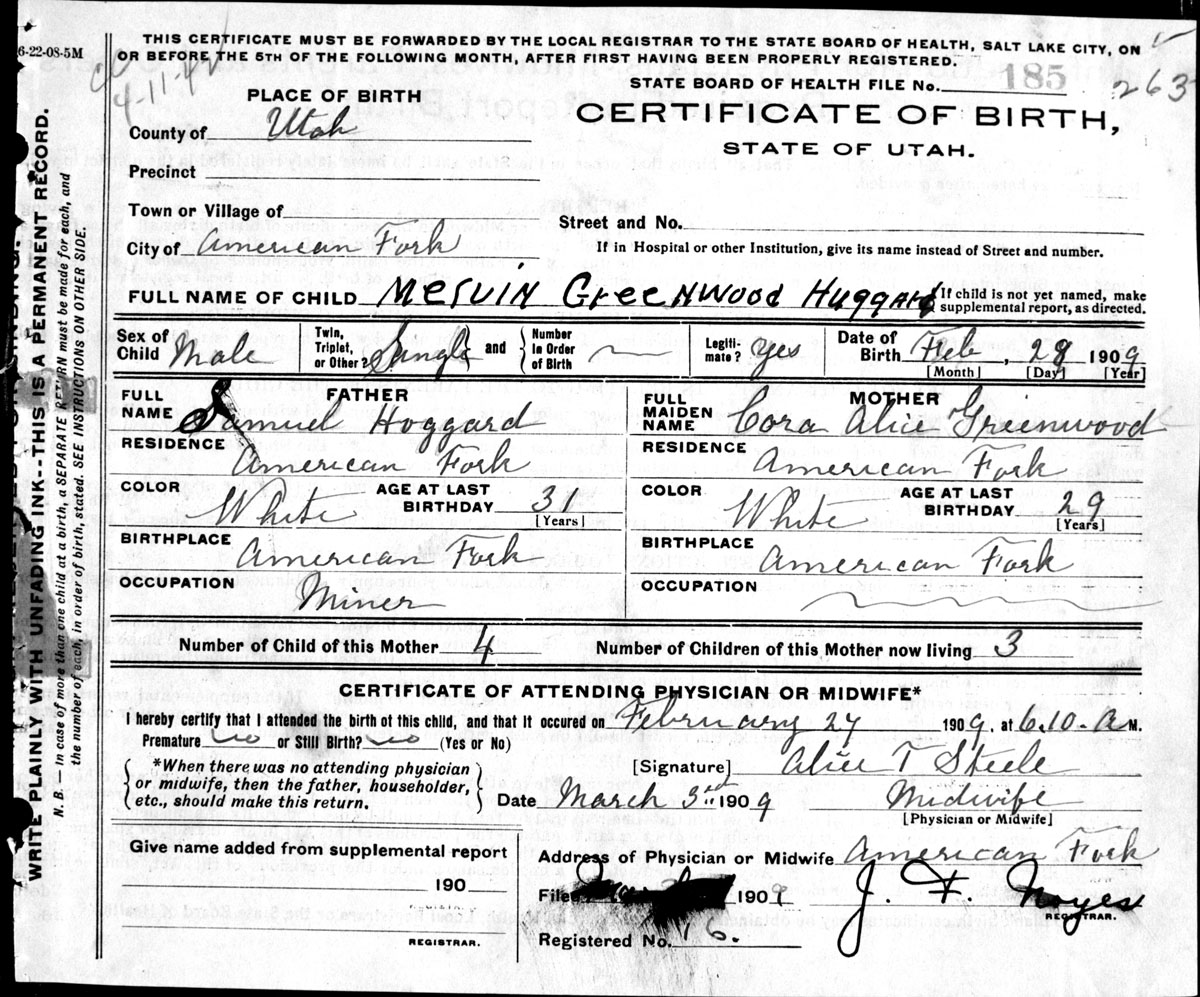 6-22-08-5M
THIS CERTIFICATE MUST BE FORWARDED BY THE LOCAL REGISTRAR TO THE STATE BOARD OF HEALTH, SALT LAKE CITY, ON
OR BEFORE THE 5TH OF THE FOLLOWING MONTH, AFTER FIRST HAVING BEEN PROPERLY REGISTERED.
STATE BOARD OF HEALTH FILE No. 185 263
PLACE OF BIRTH
CERTIFICATE OF BIRTH,
STATE OF UTAH.
County of Utah
Precinct
Town or Village of
Street and No.
City of American Fork
If in Hospital or other Institution, give its name instead of Street and number.
FULL NAME OF CHILD Mervin Greenwood Huggard
If child is not yet named, make
supplemental report, as directed.
Sex of Child Male
Twin, Triplet, or Other? Single and Number in Order of Birth
Legitimate? yes
Date of Birth Feb, 28 1909
[Month] [Day] [Year]
FATHER
FULL NAME Samuel Hoggard
RESIDENCE American Fork
COLOR White AGE AT LAST BIRTHDAY 31 [Years]
BIRTHPLACE American Fork
OCCUPATION Miner
MOTHER
FULL MAIDEN NAME Cora Alice Greenwood
RESIDENCE American Fork
COLOR White AGE AT LAST BIRTHDAY 29 [Years]
BIRTHPLACE American Fork
OCCUPATION
Number of Child of this Mother 4 Number of Children of this Mother now living 3
CERTIFICATE OF ATTENDING PHYSICIAN OR MIDWIFE*
I hereby certify that I attended the birth of this child, and that it occured on February 27 1909, at 6.10. A M.
Premature no or Still Birth? no (Yes or No)
*When there was no attending physician
or midwife, then the father, householder,
etc., should make this return.
[Signature] Alice T Steele
Date March 3rd 1909 Midwife
[Physician or Midwife]
Give name added from supplemental report
190
REGISTRAR.
Address of Physician or Midwife American Fork
Filed 1909 J. F. Noyes
REGISTRAR.
Registered No. 16.
WRITE PLAINLY WITH UNFADING INK--THIS IS A PERMANENT RECORD.
N. B.—In case of more than one child at a birth, a SEPARATE RETURN must be made for each, and
the number of each, in order of birth, stated. SEE INSTRUCTIONS ON OTHER SIDE.